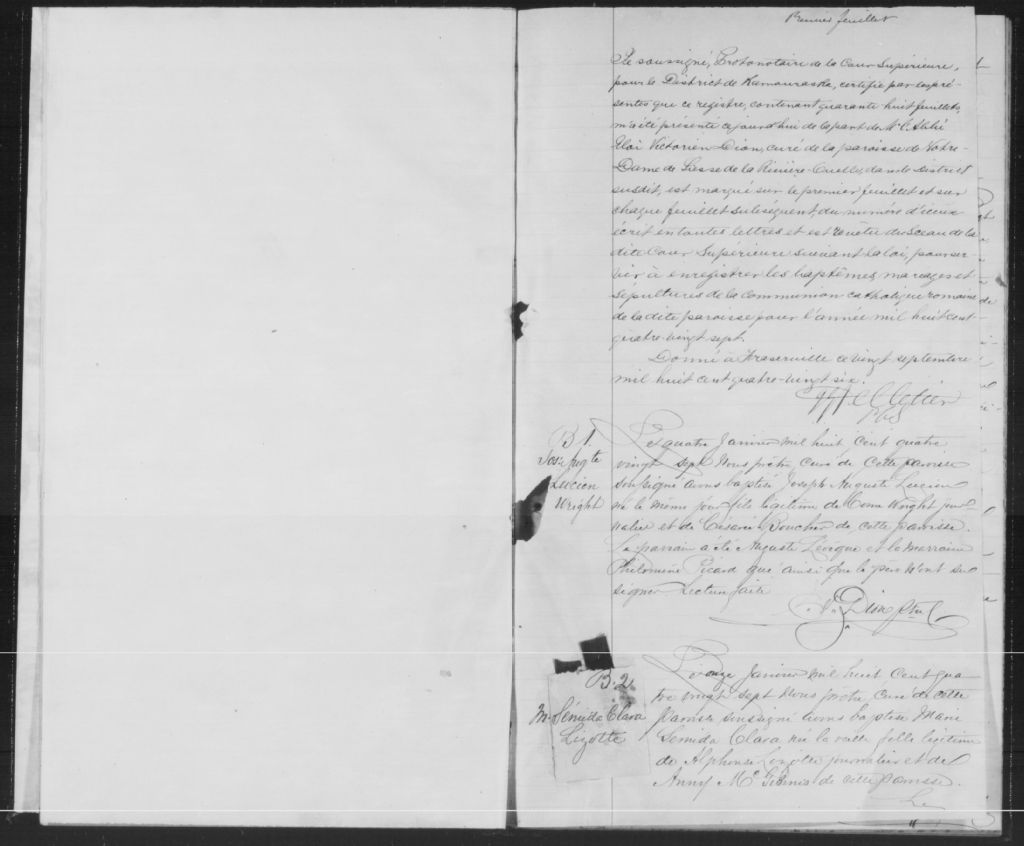 Premier feuillet
Je soussigné, Protonotaire de la Cour Supérieure,
pour le District de Kamouraska, certifie par les pré-
sentes que ce registre, contenant quarante huit feuillets,
m'a été présenté ce jourd'hui de la part de Mr
Eloi Victorien Dion, curé de la paroisse de Notre-
Dame de Liesse de la Rivière-Ouelle, dans le District
susdit, est marqué sur le premier feuillet et sur
chaque feuillet subséquent, du numéro d'iceux
écrit en toutes lettres et est revêtu du Sceau de la
dite Cour Supérieure suivant la loi, pour ser-
vir à enregistrer les baptêmes, mariages et
sépultures de la communion catholique romaine
de la dite paroisse pour l'année mil huit cent
quatre-vingt sept.
Donné à Fraserville ce vingt septembre
mil huit cent quatre-vingt six.
Pelletier
P.C.S.
B 1
Jos. Aug te
Lucien
Wright
Le quatre Janvier mil huit cent quatre
vingt sept Nous prêtre, curé de cette paroisse
soussigné avons baptisé Joseph Auguste Lucien
né le même jour fils légitime de Wright jour-
nalier et de Césarie Boucher de cette paroisse.
Le parrain a été Auguste Lévêque et la marraine
Philomène Picard qui ainsi que le père n'ont su
signer Lecture faite
Dion Ptre
B. 2
M. Sémida Clara
Lizotte
Le onze Janvier mil huit cent qua
tre vingt sept Nous prêtre curé de cette
paroisse soussigné avons baptisé Marie
Semida Clara née la veille fille légitime
de Alphonse Lizotte journalier et de
Anny de cette paroisse.
Le